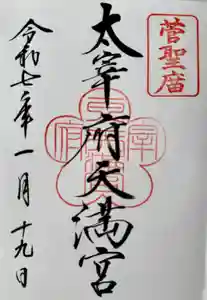 菅聖庿
太宰府天満宮
令和七年一月十九日